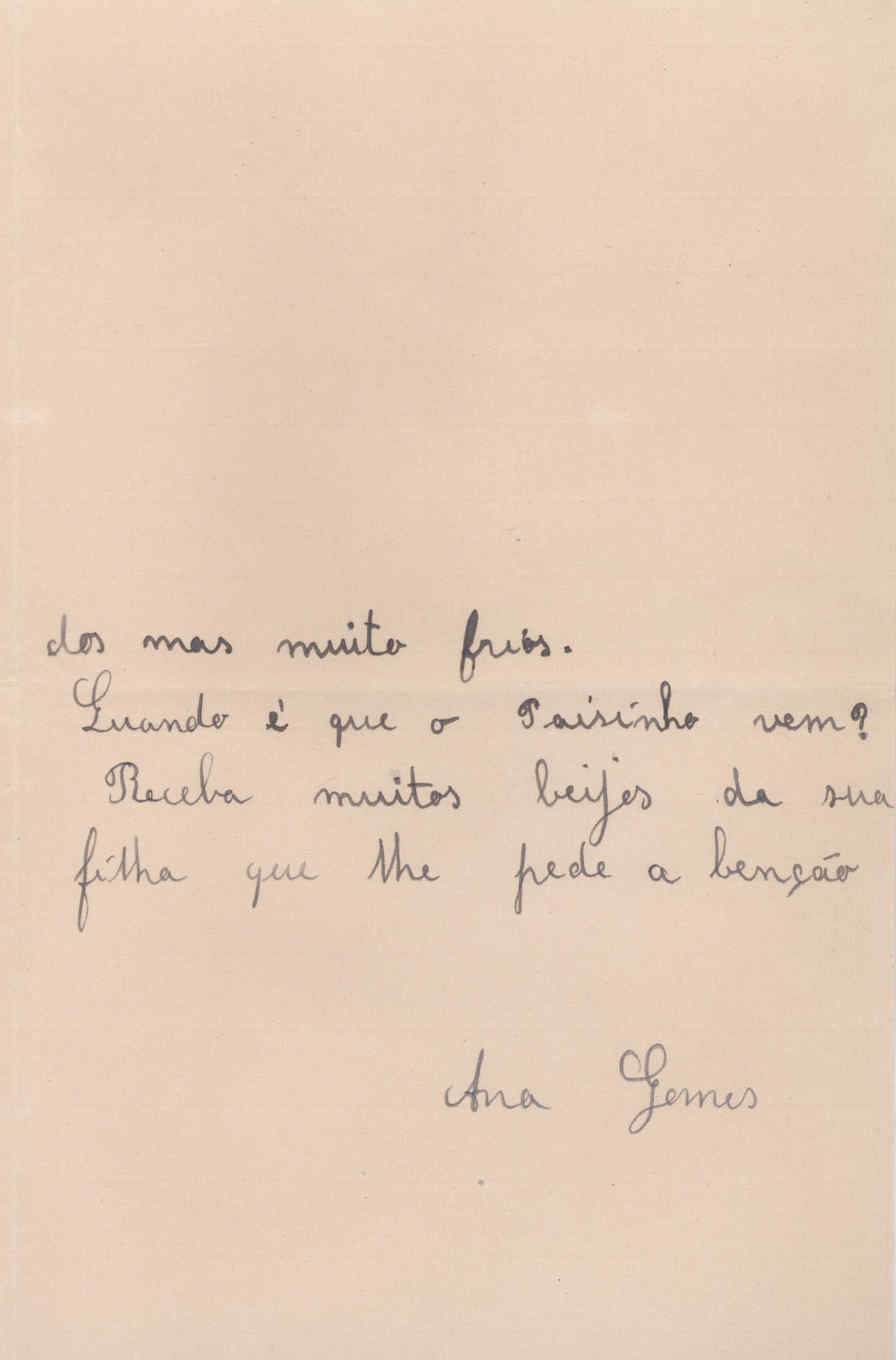 dos mas muito friós.
Quando é que o Paisinho vem?
Receba muitos beijos da sua
filha que lhe pede a benção
Ana Gomes